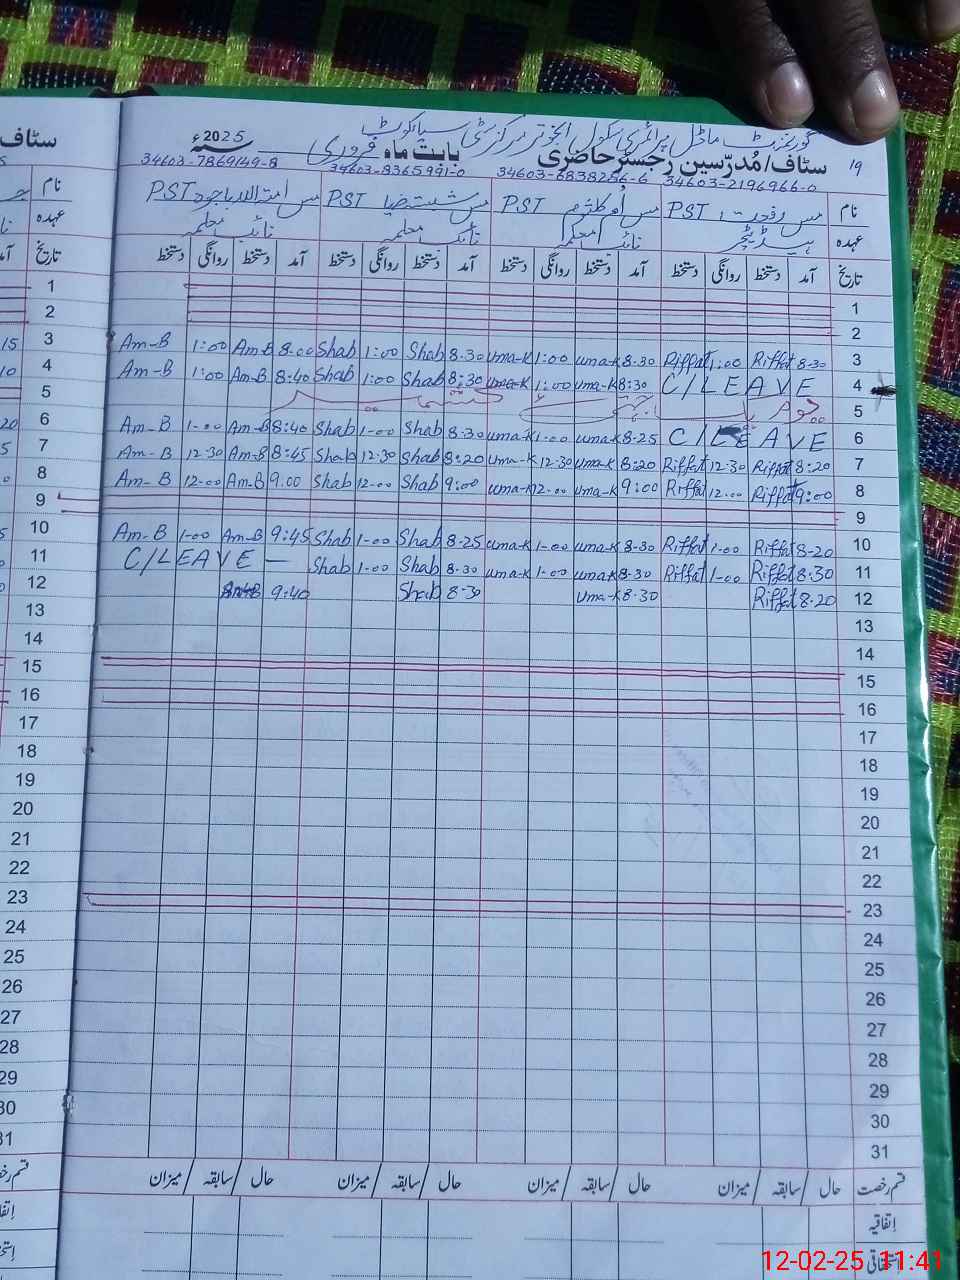 گورنمنٹ ماڈل پرائمری سکول مرکز سٹی سیالکوٹ
سٹاف/مُدرّسین رجسٹر حاضری بابت ماہ فروری سنہ 2025ء
19
34603-2196966-0 34603-6838256-6 34603-8365991-0 34603-7869149-8
نام مس رفعت PST مس اُم کلثوم PST مس شبت ضیا PST مس امتہ الباجوہ PST
عہدہ ہیڈ ٹیچر نائب معلمہ نائب معلمہ نائب معلمہ
تاریخ آمد دستخط روانگی دستخط آمد دستخط روانگی دستخط آمد دستخط روانگی دستخط آمد دستخط روانگی دستخط
1 1
2 2
3 Am-B 1:00 Am-B 8.00 Shab 1:00 Shab 8.30 uma-K 1:00 uma-K 8-30 Riffat 1:00 Riffat 8-30 3
4 Am-B 1:00 Am-B 8:40 Shab 1:00 Shab 8:30 uma-K 1:00 uma-K 8:30 C/LEAVE 4
5 یوم یکجہتی کشمیر 5
6 Am-B 1-00 Am-B 8:40 Shab 1-00 Shab 8.30 uma-K 1:00 uma-K 8-25 C/LEAVE 6
7 Am-B 12-30 Am-B 8:45 Shab 12.30 Shab 8:20 uma-K 12-30 uma-K 8:20 Riffat 12-30 Riffat 8:20 7
8 Am-B 12-00 Am-B 9.00 Shab 12-00 Shab 9:00 uma-K 12-00 uma-K 9:00 Riffat 12.00 Riffat 9:00 8
9 9
10 Am-B 1-00 Am-B 9:45 Shab 1-00 Shab 8-25 uma-K 1-00 uma-K 8-30 Riffat 1-00 Riffat 8-20 10
11 C/LEAVE — Shab 1-00 Shab 8.30 uma-K 1-00 uma-K 8-30 Riffat 1-00 Riffat 8:30 11
12 Am-B 9:40 Shab 8-30 uma-K 8-30 Riffat 8.20 12
13 13
14 14
15 15
16 16
17 17
18 18
19 19
20 20
21 21
22 22
23 23
24 24
25 25
26 26
27 27
28 28
29 29
30 30
31 31
قسم رخصت حال / سابقہ / میزان حال / سابقہ / میزان حال / سابقہ / میزان حال / سابقہ / میزان
اِتفاقیہ
استحقاقی
12-02-25 11:41